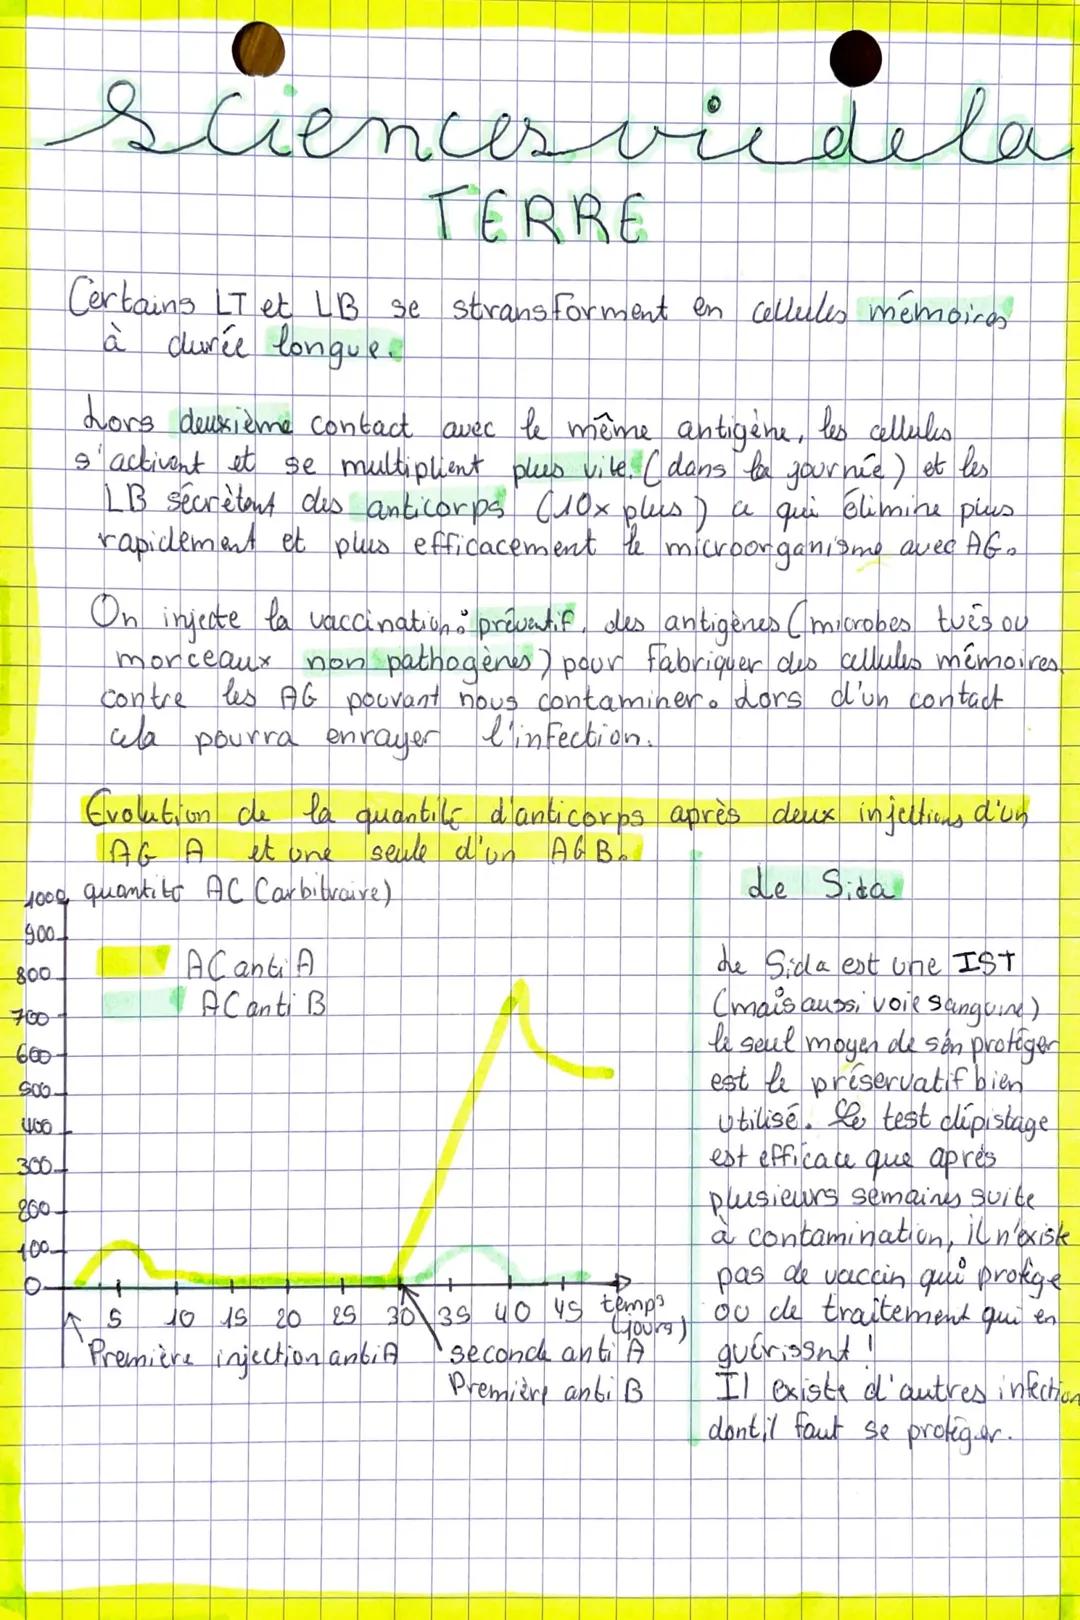 Sciences vie de la
TERRE
Certains LT et LB se stransforment en cellules mémoires
à durée longue.
Lors deuxième contact avec le même antigène, les cellules
s'activent et se multiplient plus vite. (dans la journée) et les
LB sécrètent des anticorps (10x plus) ce qui élimine plus
rapidement et plus efficacement le microorganisme avec AG.
On injecte la vaccination : préventif, des antigènes (microbes tués ou
morceaux non pathogènes) pour fabriquer des cellules mémoires
contre les AG pouvant nous contaminer. Lors d'un contact
cela pourra enrayer l'infection.
Evolution de la quantité d'anticorps après deux injections d'un
AG A et une seule d'un AG B.
quantité AC (arbitraire)
1000
900
800
700
600
500
400
300
200
100
0
AC anti A
AC anti B
5 10 15 20 25 30 35 40 45 temps
(jours)
Première injection anti A
seconde anti A
Première anti B
Le Sida
Le Sida est une IST
(mais aussi voie sanguine)
le seul moyen de s'en protéger
est le préservatif bien
utilisé. Le test dépistage
est efficace que après
plusieurs semaines suite
à contamination, il n'existe
pas de vaccin qui protège
ou de traitement qui en
guérissent !
Il existe d'autres infection
dont il faut se protéger.